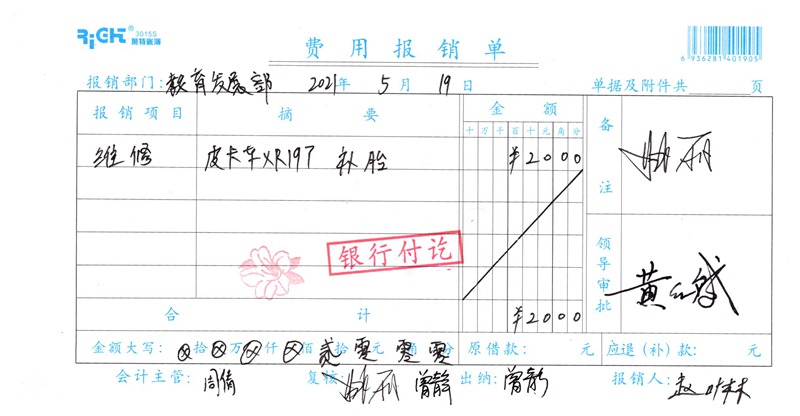 RiGHT® 3015S
莱特瑞海
费用报销单
6 936281 401905
报销部门:教育发展部 2021年 5 月 19 日 单据及附件共 页
报销项目 摘 要 金 额 备注
十 万 千 百 十 元 角 分
维修 皮卡车XR197 补胎 ¥2000
银行付讫
领导审批
合 计 ¥2000
金额大写: ⊗拾⊗万⊗仟⊗佰贰拾零元零角零分 原借款: 元 应退(补)款: 元
会计主管:周倩 复核: 曾静 出纳: 报销人: